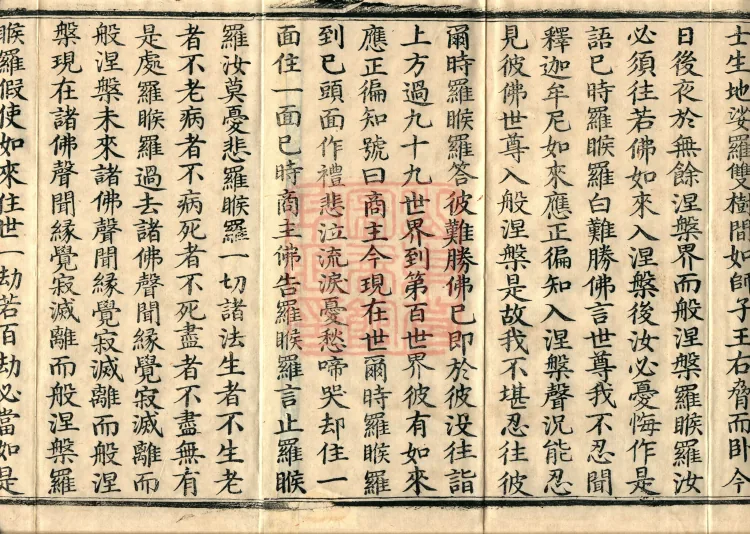 士生地娑羅雙樹間如師子王右脅而卧今
日後夜於無餘涅槃界而般涅槃羅睺羅汝
必須往若佛如來入涅槃後汝必憂悔作是
語已時羅睺羅白難勝佛言世尊我不忍聞
釋迦牟尼如來應正徧知入涅槃聲況能忍
見彼佛世尊入般涅槃是故我不堪忍往彼
爾時羅睺羅答彼難勝佛已即於彼没往詣
上方過九十九世界到第百世界彼有如來
應正徧知號曰商主今現在世爾時羅睺羅
到已頭面作禮悲泣流淚憂愁啼哭却住一
面住一面已時商主佛告羅睺羅言止羅睺
羅汝莫憂悲羅睺羅一切諸法生者不生老
者不老病者不病死者不死盡者不盡無有
是處羅睺羅過去諸佛聲聞緣覺寂滅離而
般涅槃未來諸佛聲聞緣覺寂滅離而般涅
槃現在諸佛聲聞緣覺寂滅離而般涅槃羅
睺羅假使如來住世一劫若百劫必當如是